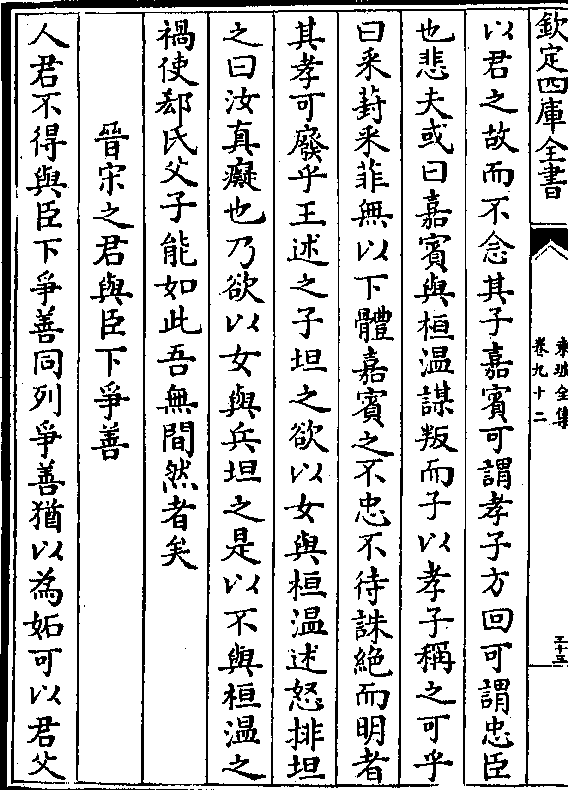 欽定四庫全書
東坡全集
卷九十二
三十三
以君之故而不念其子嘉賓可謂孝子方回可謂忠臣
也悲夫或曰嘉賓與桓温謀叛而子以孝子稱之可乎
曰采葑采菲無以下體嘉賓之不忠不待誅絶而明者
其孝可廢乎王述之子坦之欲以女與桓温述怒排坦
之曰汝真癡也乃欲以女與兵坦之是以不與桓温之
禍使郄氏父子能如此吾無間然者矣
晉宋之君與臣下爭善
人君不得與臣下爭善同列爭善猶以為妬可以君父